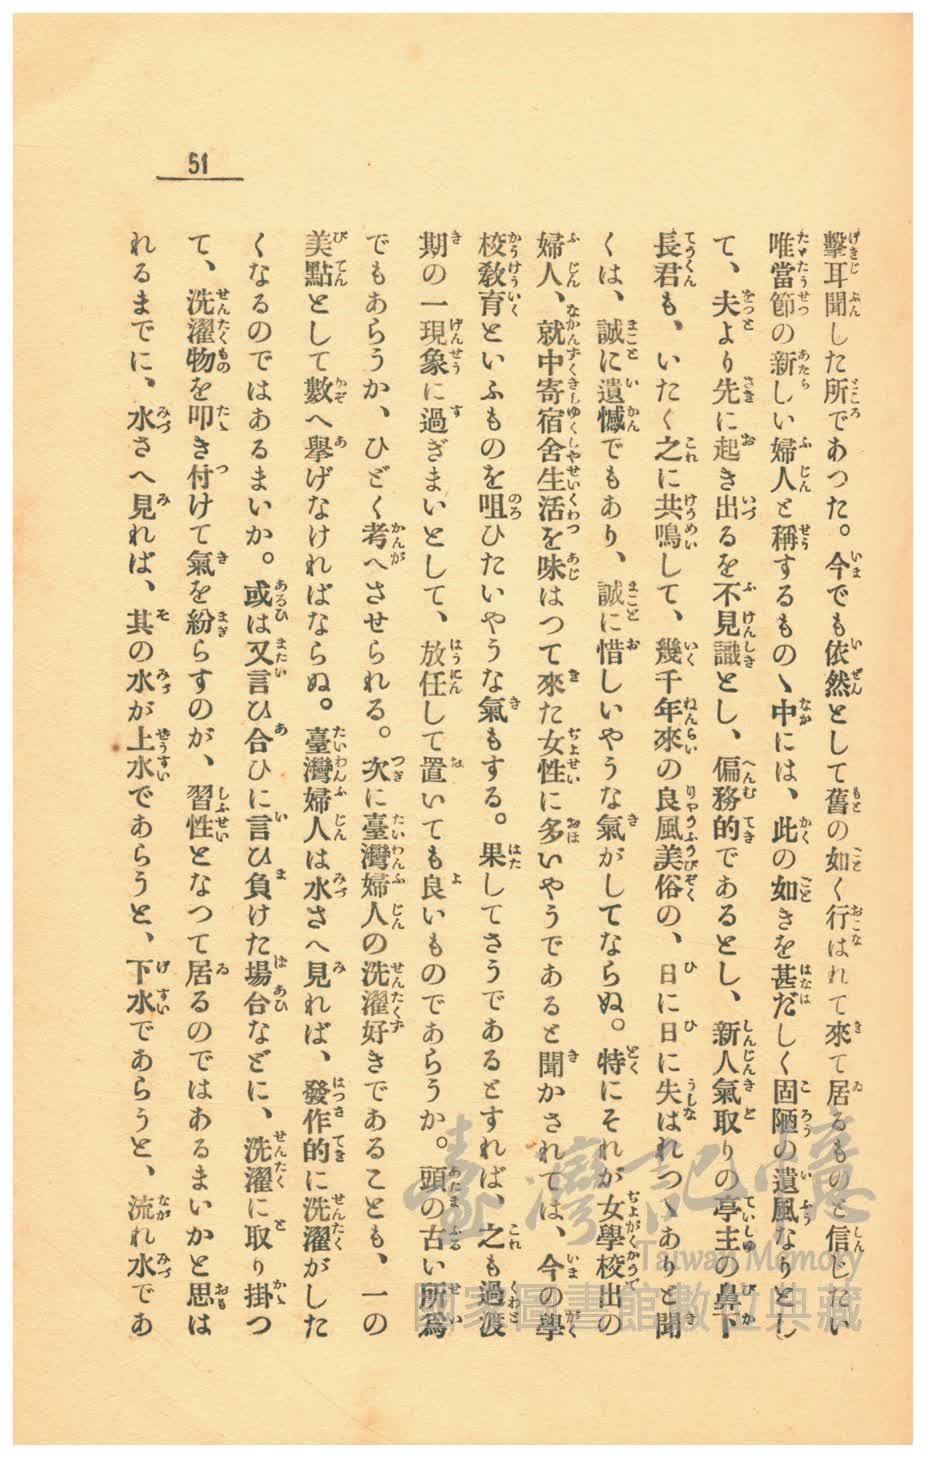 51
擊耳聞した所であつた。今でも依然として舊の如く行はれて來て居るものと信じたい
唯當節の新しい婦人と稱するものゝ中には、此の如きを甚だしく固陋の遺風なりとし
て、夫より先に起き出るを不見識とし、偏務的であるとし、新人氣取りの亭主の鼻下
長君も、いたく之に共鳴して、幾千年來の良風美俗の、日に日に失はれつゝありと聞
くは、誠に遺憾でもあり、誠に惜しいやうな氣がしてならぬ。特にそれが女學校出の
婦人、就中寄宿舍生活を味はつて來た女性に多いやうであると聞かされては、今の學
校敎育といふものを咀ひたいやうな氣もする。果してさうであるとすれば、之も過渡
期の一現象に過ぎまいとして、放任して置いても良いものであらうか。頭の古い所爲
でもあらうか、ひどく考へさせられる。次に臺灣婦人の洗濯好きであることも、一の
美點として數へ擧げなければならぬ。臺灣婦人は水さへ見れば、發作的に洗濯がした
くなるのではあるまいか。或は又言ひ合ひに言ひ負けた場合などに、洗濯に取り掛つ
て、洗濯物を叩き付けて氣を紛らすのが、習性となつて居るのではあるまいかと思は
れるまでに、水さへ見れば、其の水が上水であらうと、下水であらうと、流れ水であ
臺灣記憶
Taiwan Memory
國家圖書館數位典藏